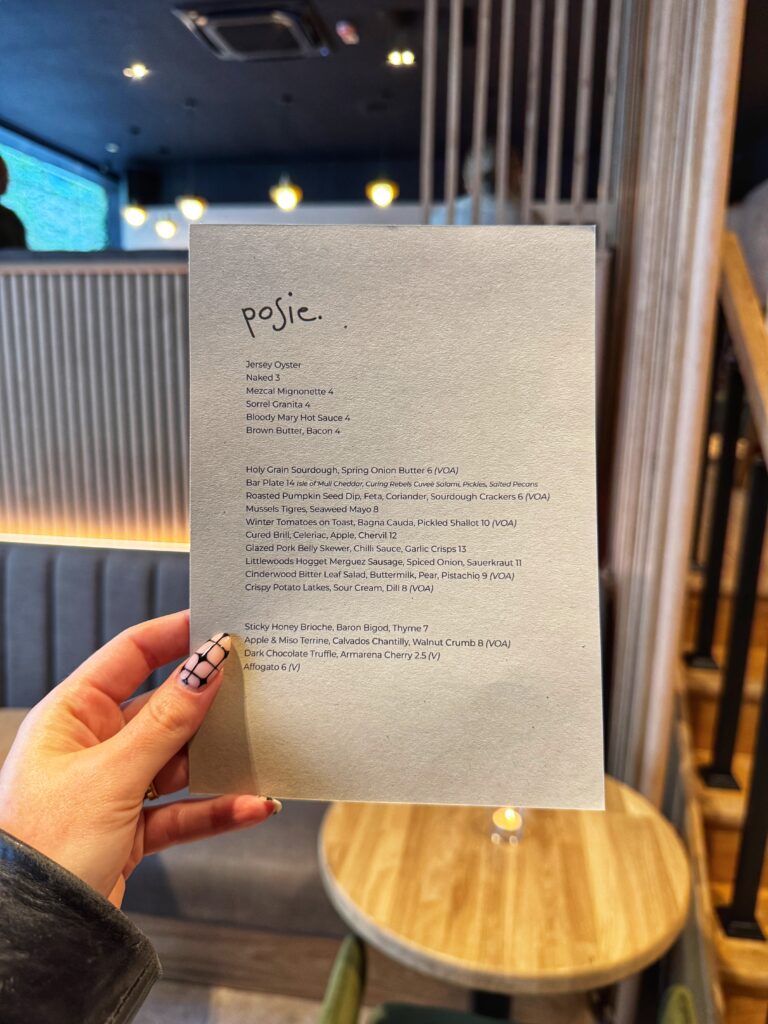 posie.
Jersey Oyster
Naked 3
Mezcal Mignonette 4
Sorrel Granita 4
Bloody Mary Hot Sauce 4
Brown Butter, Bacon 4
Holy Grain Sourdough, Spring Onion Butter 6 (VOA)
Bar Plate 14 Isle of Mull Cheddar, Curing Rebels Cuveé Salami, Pickles, Salted Pecans
Roasted Pumpkin Seed Dip, Feta, Coriander, Sourdough Crackers 6 (VOA)
Mussels Tigres, Seaweed Mayo 8
Winter Tomatoes on Toast, Bagna Cauda, Pickled Shallot 10 (VOA)
Cured Brill, Celeriac, Apple, Chervil 12
Glazed Pork Belly Skewer, Chilli Sauce, Garlic Crisps 13
Littlewoods Hogget Merguez Sausage, Spiced Onion, Sauerkraut 11
Cinderwood Bitter Leaf Salad, Buttermilk, Pear, Pistachio 9 (VOA)
Crispy Potato Latkes, Sour Cream, Dill 8 (VOA)
Sticky Honey Brioche, Baron Bigod, Thyme 7
Apple & Miso Terrine, Calvados Chantilly, Walnut Crumb 8 (VOA)
Dark Chocolate Truffle, Armarena Cherry 2.5 (V)
Affogato 6 (V)